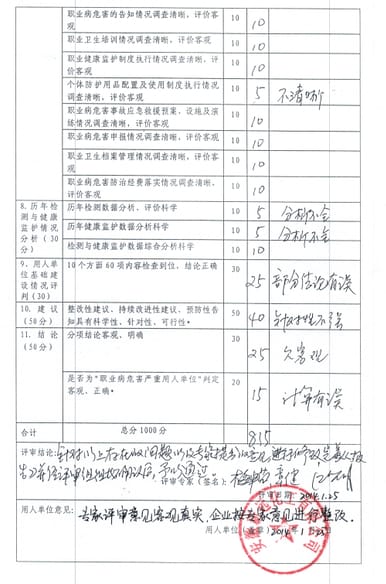 职业病危害的告知情况调查清晰，评价客观 10 10
职业卫生培训情况调查清晰，评价客观 10 10
职业健康监护制度执行情况调查清晰，评价客观 10 10
个体防护用品配置及使用制度执行情况调查清晰，评价客观 10 5 不清晰
职业病危害事故应急救援预案、设施及演练情况调查清晰，评价客观 10 10
职业病危害申报情况调查清晰，评价客观 10 10
职业卫生档案管理情况调查清晰，评价客观 10 10
职业病危害防治经费落实情况调查清晰，评价客观 10 10
8. 历年检测与健康监护情况分析（30分）
历年检测数据分析、评价科学 10 5 分析不全
历年健康监护数据分析、评价科学 10 5 分析不全
检测与健康监护数据综合分析科学 10 10
9. 用人单位基础建设情况评判（30）
10个方面60项内容检查到位，结论正确 30 25 部分结论有误
10. 建议（50分）
整改性建议、持续改进性建议、预防性告知具有科学性、针对性、可行性。 50 40 针对性不强
11. 结论（50分）
分项结论客观、明确 30 25 欠客观
是否为“职业病危害严重用人单位”判定客观、正确。 20 15 计算有误
合计 总分1000分 815
评审结论：针对以上存在的问题以及专家提出的意见进行修改完善
予以通过。
评审专家（签名）：
评审日期：2014.1.25
用人单位意见：专家评审意见客观真实，企业按专家意见进行整改。
用人单位（盖章）2014年1月25日